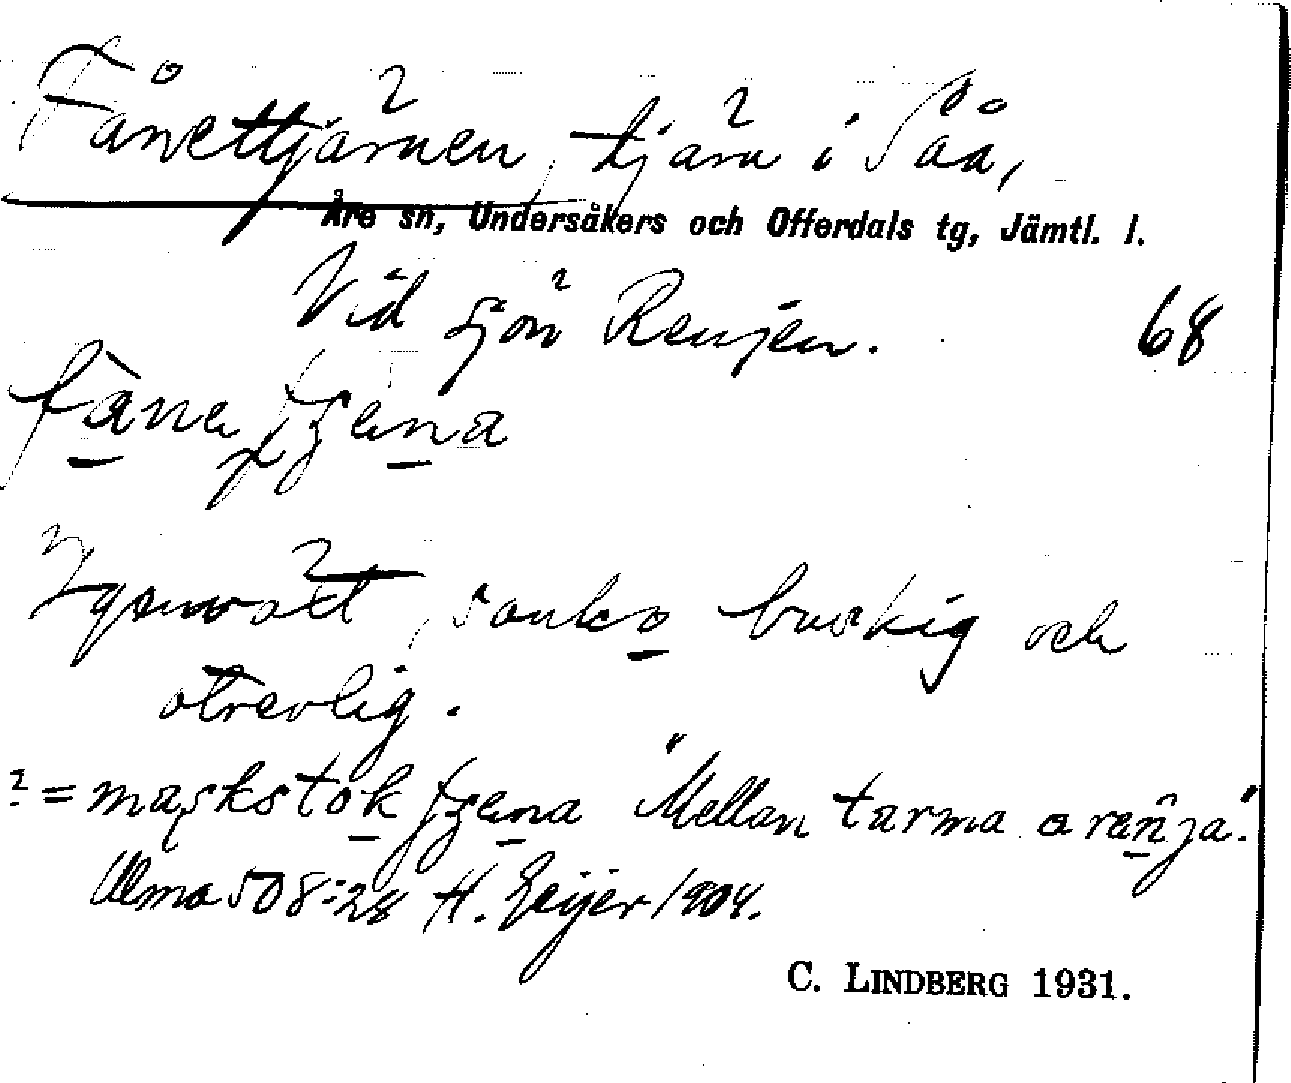 Fånettjärnen, tjärn i Såa,
Åre sn, Undersåkers och Offerdals tg, Jämtl. l.
Vid sjön Renjen. 68
Igenvält, sanka buskig och
otrevlig.
"Mellan tarma o renja".
Ulma 508:28 H. Geijer 1904.
C. LINDBERG 1931.